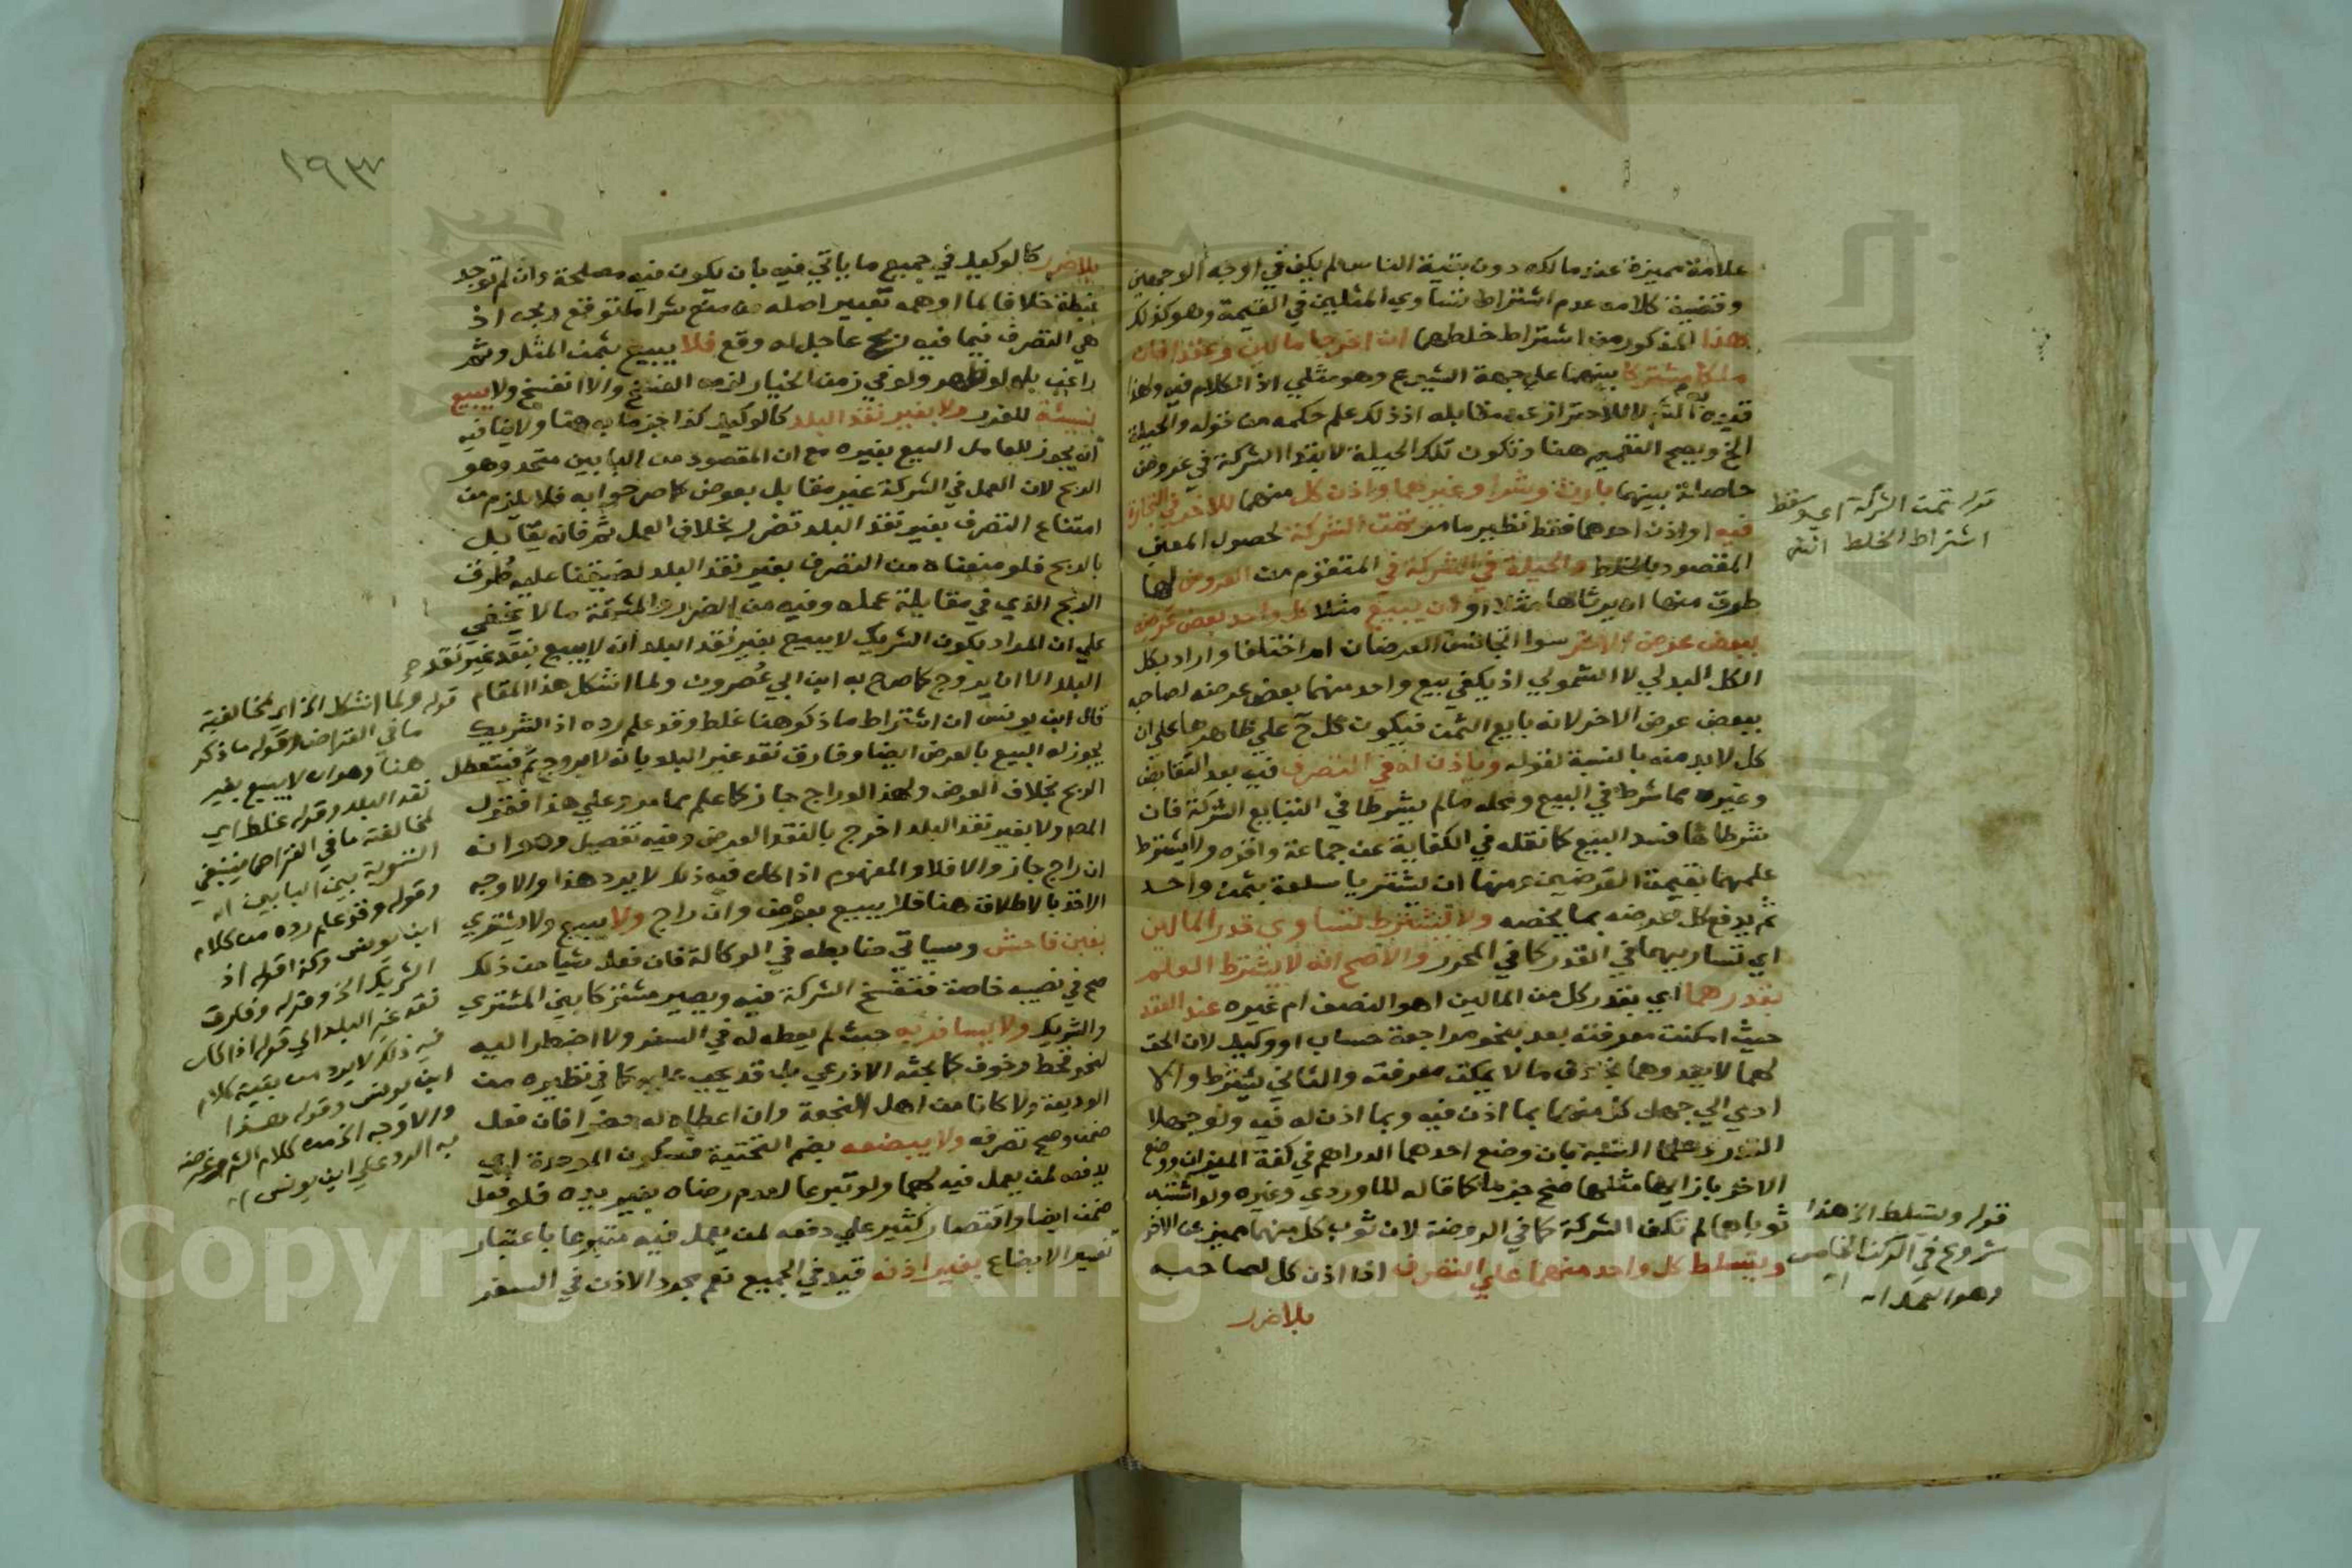 علامة مميزة عند مالكه دون بقية الناس لم يكف في اوجه الوجهين
وقضية كلامه عدم اشتراط تساوي المثلين في القيمة وهو كذلك
هذا المذكور من اشتراط خلطهما ان اخرجا مالين وعقدا فان
ملكا مشتركا بينهما على جهة الشيوع وهو مثلي اذ الكلام فيه ولهذا
لا للاحتراز عن مقابله اذ ذلك علم حكمه من قوله والحيلة
الخ ويصح التعميم هنا وتكون تلك الحيلة لابتدا الشركة في عروض
حاصلة بينهما بارث وشرا وغيرهما واذن كل منهما للاخر في التجارة
فيه او اذن احدهما فقط نظير ما مر تمت الشركة لحصول المعنى
المقصود بالخلط والحيلة في الشركة في المتقوم من العروض لها
طرق منها ان يرثاها مثلا او ان يبيع مثلا كل واحد بعض عرضه
ببعض عرض الاخر سوا اتجانس العرضان ام اختلفا واراد بكل
الكل البدلي لا الشمولي اذ يكفي بيع واحد منهما بعض عرضه لصاحبه
ببعض عرض الاخر لانه بايع الثمن فيكون كل ح على ظاهرها على ان
كل لابد منه بالنسبة لقوله وياذن له في التصرف فيه بعد التقابض
وغيره مما شرط في البيع ومحله ما لم يشرطا في التبايع الشركة فان
شرطاها فسد البيع كما نقله في الكفاية عن جماعة واقره ولا يشترط
علمهما بقيمة العرضين ومنها ان يشتريا سلعة بثمن واحد
ثم يدفع كل عرضه بما يخصه ولا يشترط تساوي قدر المالين
اي تساويهما في القدر كما في المحرر والاصح انه لا يشترط العلم
بقدرهما اي بقدر كل من المالين اهو النصف ام غيره عند العقد
حيث امكنت معرفته بعد بنحو مراجعة حساب او وكيل لان الحق
لهما لا يعدوهما بخلاف ما لا يمكن معرفته والثاني يشترط والا
ادى الي جهل كل منهما بما اذن فيه وبما اذن له فيه ولو جهلا
القدر وعلما النسبة بان وضع احدهما الدراهم في كفة الميزان ووضع
الاخر بازايها مثلها صح جزما كما قاله الماوردي وغيره ولو اشتبه
ثوباهما لم تكف الشركة كما في الروضة لان ثوب كل منهما مميز عن الاخر
ويتسلط كل واحد منهما على التصرف اذا اذن كل لصاحبه
بلا ضرر
قوله تمت الشركة اي وسقط
اشتراط الخلط انتهى
قوله ويتسلط الخ هذا
شروع في الركن الخامس
وهو العمل اه
١٩٣
بلا ضرر كالوكيل في جميع ما ياتي فيه بان يكون فيه مصلحة وان لم توجد
غبطة خلافا لما اوهمه تعبير اصله من منع شرا ما توقع ربحه اذ
هي التصرف فيما فيه ربح عاجل له وقع فلا يبيع بثمن المثل وثم
راغب بل لو ظهر ولو في زمن الخيار لزمه الفسخ والا انفسخ ولا يبيع
بنسيئة للغرر ولا بغير نقد البلد كالوكيل كذا جزما به هنا ولا ينافيه
انه يجوز للعامل البيع بغيره مع ان المقصود من البابين متحد وهو
الربح لان العمل في الشركة غير مقابل بعوض كما صرحوا به فلا يلزم من
امتناع التصرف بغير نقد البلد تضرر بخلاف العمل ثم فانه يقابل
بالربح فلو منعناه من التصرف بغير نقد البلد لضيقنا عليه طرق
الربح الذي في مقابلة عمله وفيه من الضرر والمشقة ما لا يخفى
على ان المراد بكون الشريك لا يبيع بغير نقد البلد انه لا يبيع بنقد غير نقد
البلد الا ان يروج كما صرح به ابن ابي عصرون ولما اشكل هذا المقام
قال ابن يونس ان اشتراط ما ذكر هنا غلط وقد علم رده اذ الشريك
يجوز له البيع بالعرض ايضا وفارق نقد غير البلد بانه لا يروج ثم فيتعطل
الربح بخلاف العرض ولهذا لو راج جاز كما علم مما مر وعلى هذا فقول
المص ولا بغير نقد البلد اخرج بالنقد العرض وفيه تفصيل وهو انه
ان راج جاز والا فلا والمفهوم اذا كان فيه ذلك لا يرد هذا والاوجه
الاخذ بالاطلاق هنا فلا يبيع بعرض وان راج ولا يبيع ولا يشتري
بغبن فاحش وسياتي ضابطه في الوكالة فان فعل شيا من ذلك
صح في نصيبه خاصة فتنفسخ الشركة فيه ويصير مشتركا بين المشتري
والشريك ولا يسافر به حيث لم يعطه له في السفر ولا اضطر اليه
لنحو قحط وخوف كما بحثه الاذرعي بل قد يجب عليه كما في نظيره من
الوديعة ولا كانا من اهل النجعة وان اعطاه له حضرا فان فعل
ضمن وصح تصرفه ولا يبضعه بضم التحتية فسكون الموحدة اي
يدفعه لمن يعمل فيه لهما ولو تبرعا لعدم رضاه بغير يده فلو فعل
ضمن ايضا واقتصار كثير على دفعه لمن يعمل فيه متبرعا باعتبار
تفسير الابضاع بغير اذنه قيد في الجميع نعم مجرد الاذن في السفر
قوله ولما اشكل الخ اي لمخالفته
ما في القراض وقوله ما ذكر
هنا وهو ان لا يبيع بغير
نقد البلد وقوله غلط اي
لمخالفته ما في القراض فينبغي
التسوية بين البابين اه
وقوله وقد علم رده من كلام
ابن يونس وكذا قوله اذ
الشريك الخ وقوله وفارق
نقد غير البلد الى قوله اذا كان
فيه ذلك لا يرد من بقية كلام
ابن يونس وقوله هذا
والاوجه الخ من كلام الشم وغرضه
به الرد على ابن يونس اه